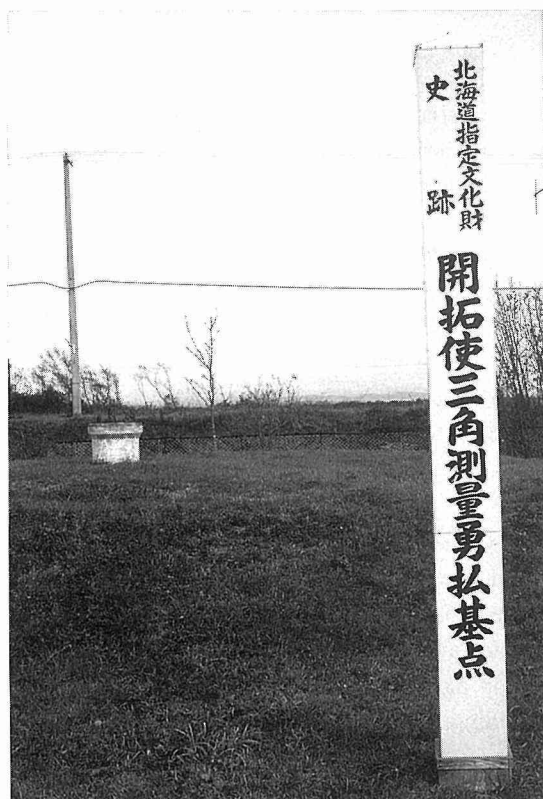 北海道指定文化財
史跡
開拓使三角測量勇払基点